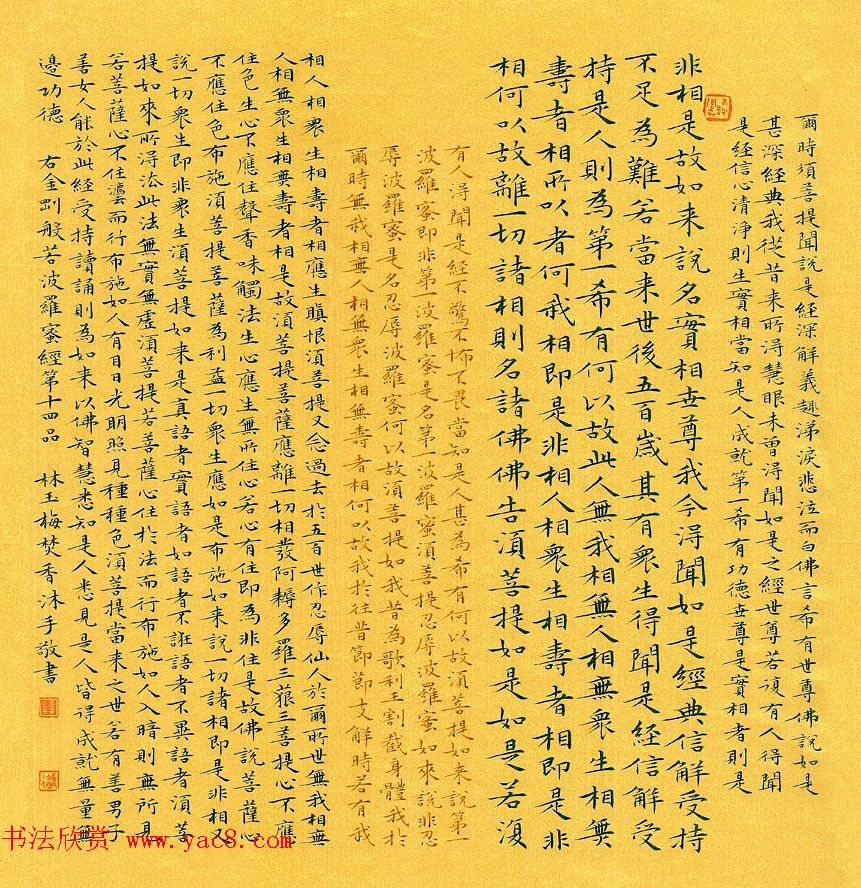 爾時須菩提聞說是經深解義趣涕淚悲泣而白佛言希有世尊佛說如是
甚深經典我從昔來所得慧眼未曾得聞如是之經世尊若復有人得聞
是經信心清淨則生實相當知是人成就第一希有功德世尊是實相者則是
非相是故如来說名實相世尊我今得聞如是經典信解受持
不足為難若當来世後五百歲其有衆生得聞是經信解受
持是人則為第一希有何以故此人無我相無人相無衆生相無
壽者相所以者何我相即是非相人相衆生相壽者相即是非
相何以故離一切諸相則名諸佛佛告須菩提如是如是若復
有人得聞是經不驚不怖不畏當知是人甚為希有何以故須菩提如来說第一
波羅蜜即非第一波羅蜜是名第一波羅蜜須菩提忍辱波羅蜜如来說非忍
辱波羅蜜是名忍辱波羅蜜何以故須菩提如我昔為歌利王割截身體我於
爾時無我相無人相無衆生相無壽者相何以故我於往昔節節支解時若有我
相人相衆生相壽者相應生瞋恨須菩提又念過去於五百世作忍辱仙人於爾所世無我相無
人相無衆生相無壽者相是故須菩提菩薩應離一切相發阿耨多羅三藐三菩提心不應
住色生心不應住聲香味觸法生心應生無所住心若心有住即為非住是故佛說菩薩心
不應住色布施須菩提菩薩為利益一切衆生應如是布施如来說一切諸相即是非相又
說一切衆生即非衆生須菩提如来是真語者實語者如語者不誑語者不異語者須菩
提如来所得法此法無實無虛須菩提若菩薩心住於法而行布施如人入暗則無所見
若菩薩心不住法而行布施如人有目日光明照見種種色須菩提當来之世若有善男子
善女人能於此經受持讀誦則為如来以佛智慧悉知是人悉見是人皆得成就無量無
邊功德 右金剛般若波羅蜜經第十四品 林玉梅焚香沐手敬書
书法欣赏 www.yac8.com